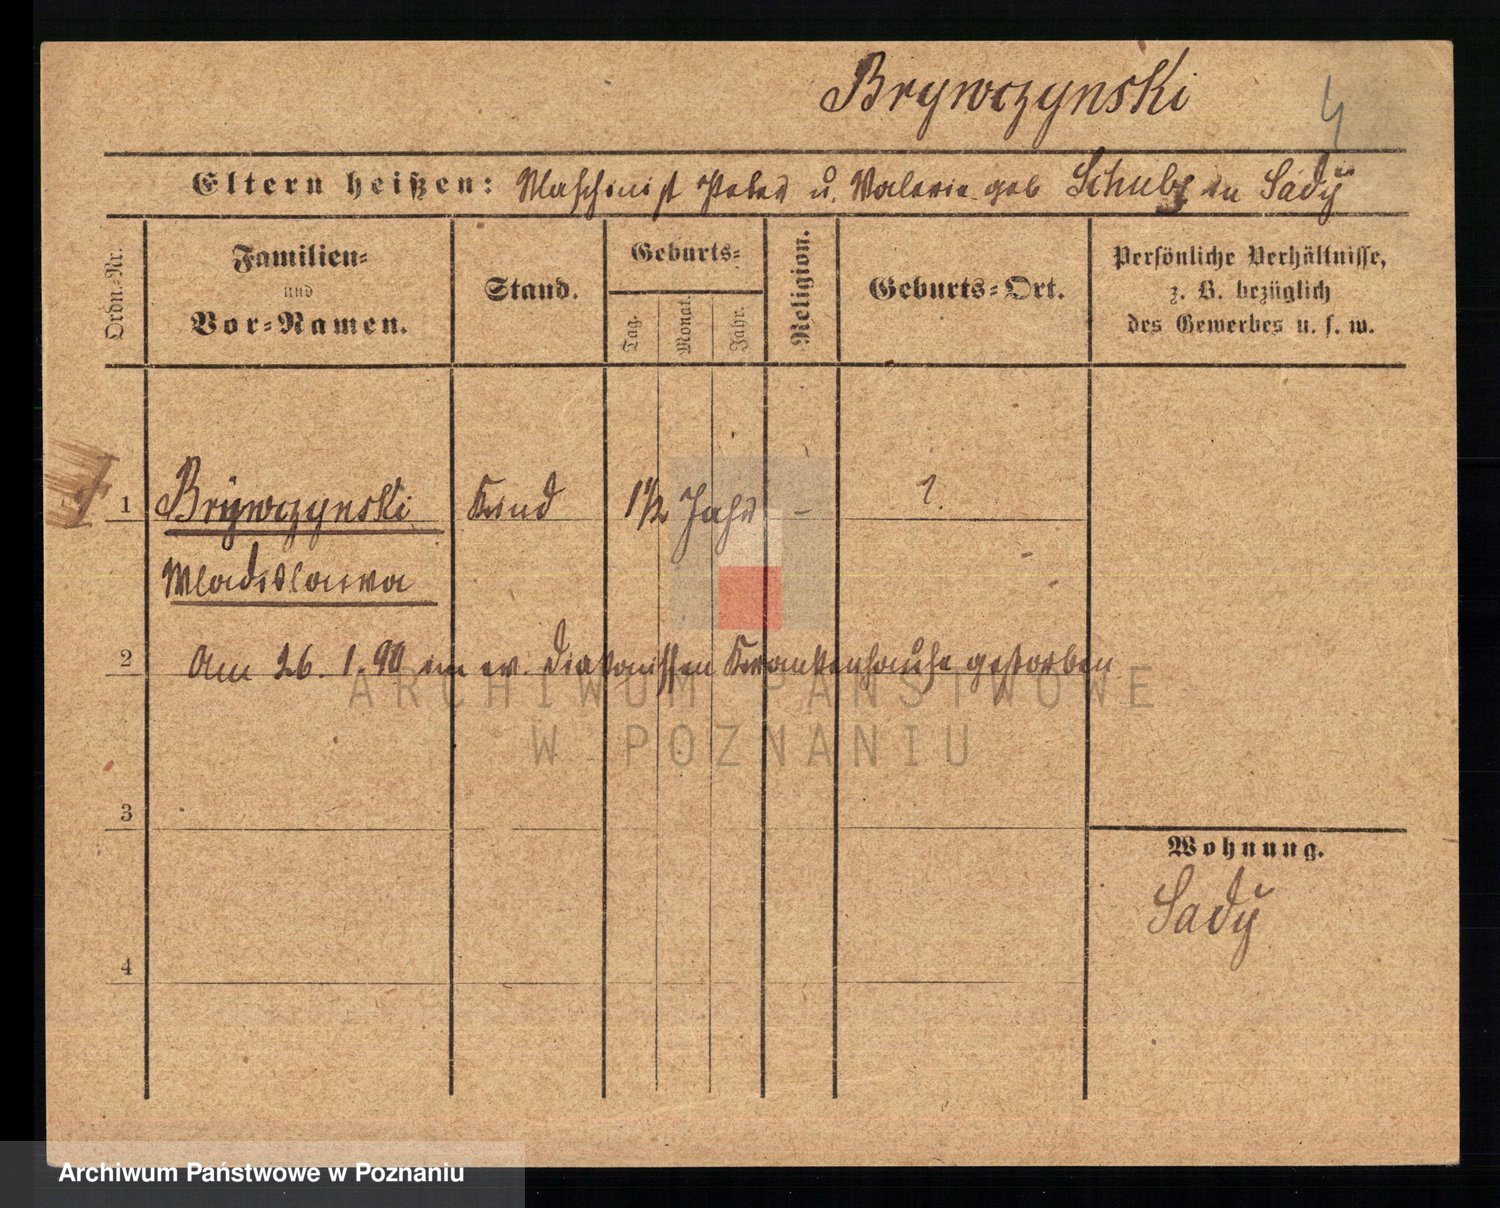 Brywczynski
4
Eltern heißen: Maschinist Peter u. Valerie geb Schulz in Sady
Ordn.-Nr.
Familien-
und
Vor-Namen.
Stand.
Geburts-
Tag.
Monat.
Jahr.
Religion.
Geburts-Ort.
Persönliche Verhältnisse,
z. B. bezüglich
des Gewerbes u. s. w.
1 Brywczynski Kind 1½ Jahr - ?
Wladislawa
2 Am 26. 1. 90 im ev. Diakonissen Krankenhause gestorben
3
Wohnung.
Sady
4
ARCHIWUM PAŃSTWOWE
W POZNANIU
Archiwum Państwowe w Poznaniu